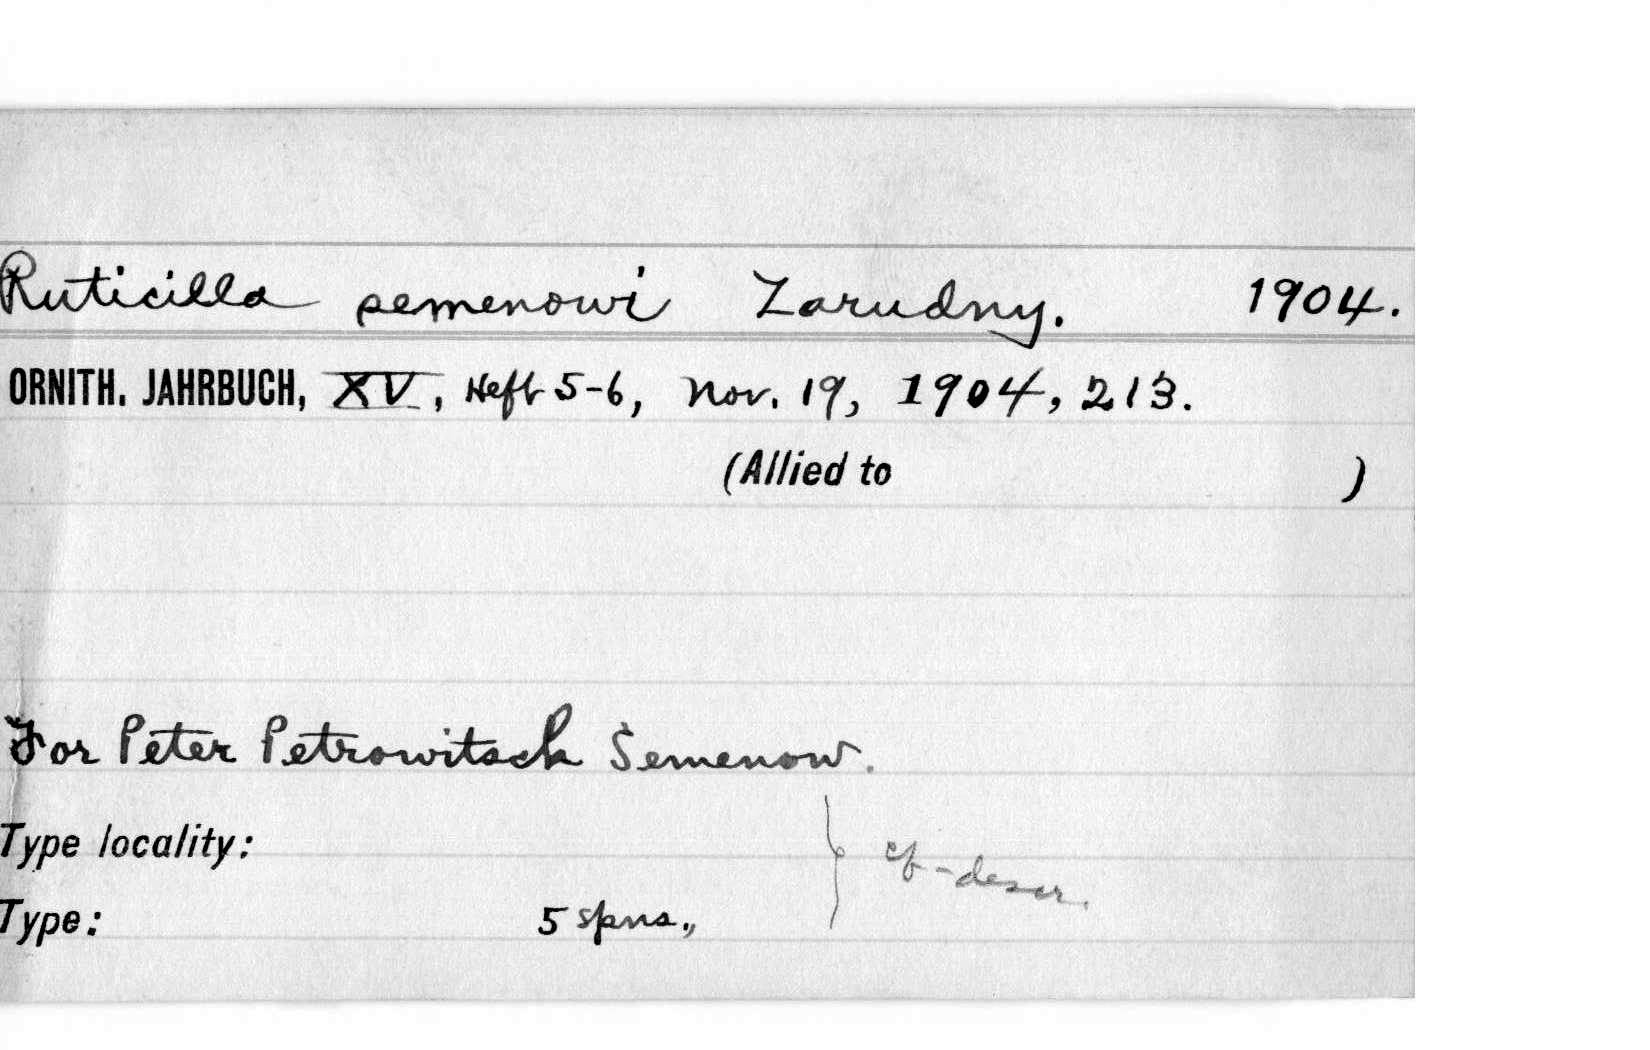 Ruticilla semenowi Zarudny. 1904.
ORNITH. JAHRBUCH, XV, Heft 5-6, Nov. 19, 1904, 213.
(Allied to )
For Peter Petrowitsch Semenow.
Type locality:
cf-descr.
Type: 5 spns.,